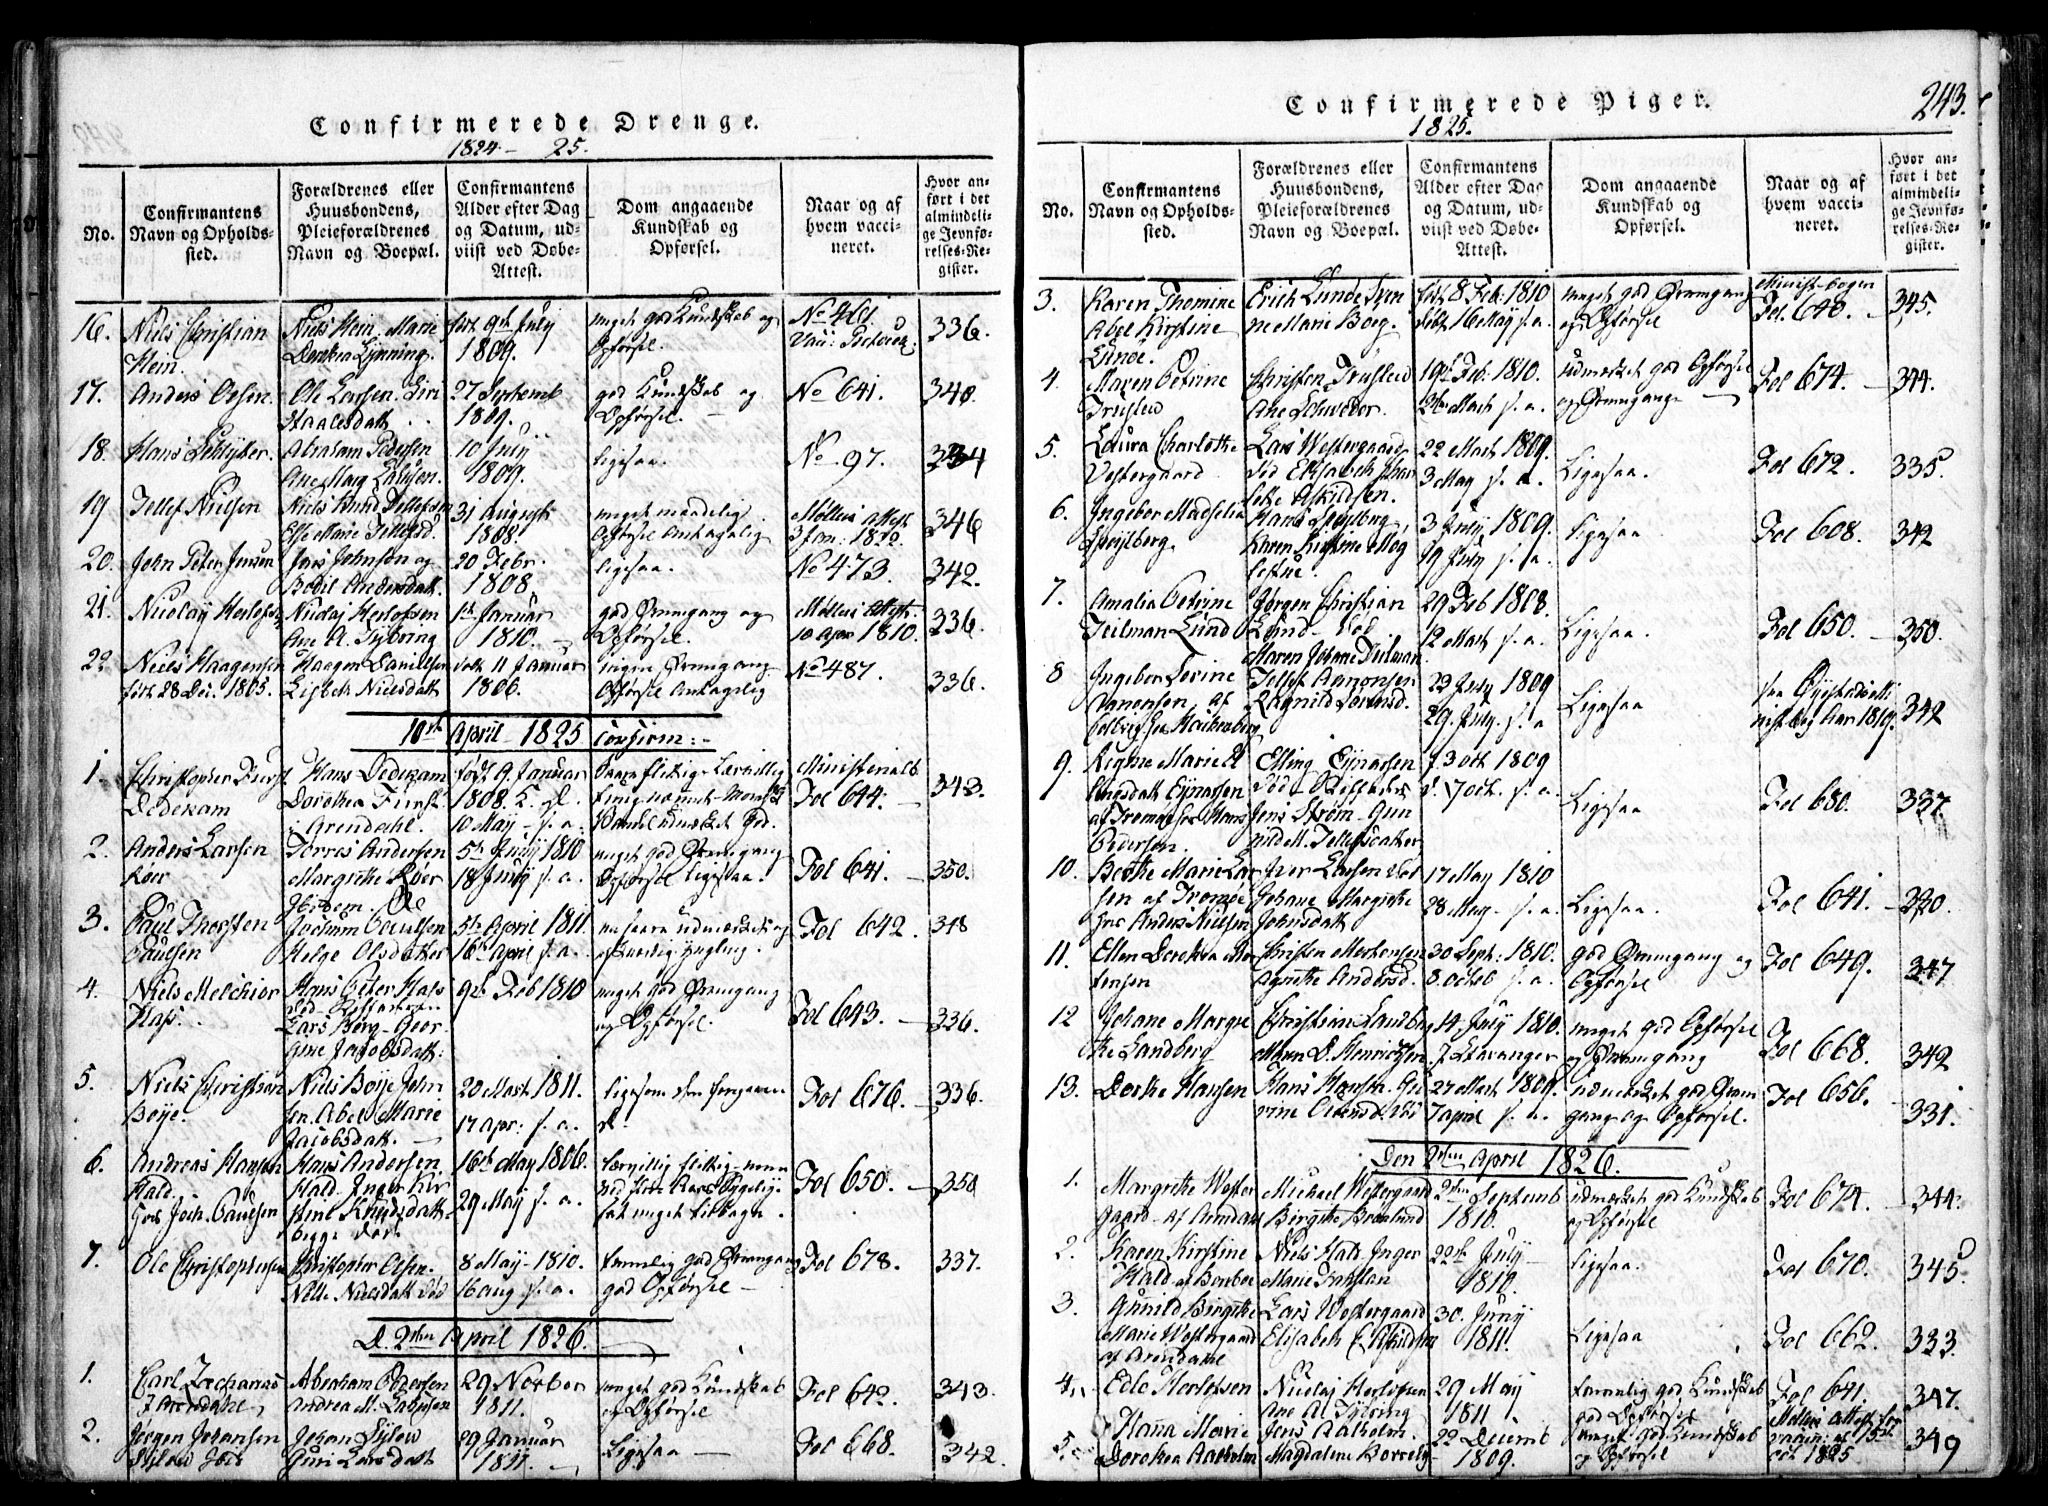 Confirmerede Drenge.
1824 - 25.
No.
Confirmantens Navn og Opholds-sted.
Forældrenes eller Huusbondens, Pleieforældrenes Navn og Boepæl.
Confirmantens Alder efter Dag og Datum, ud-viist ved Døbe-Attest.
Dom angaaende Kundskab og Opførsel.
Naar og af hvem vacci-neret.
Hvor an-ført i det almindeli-ge Jevnfø-relses-Re-gister.
16. Niels Christian Hein. Niels Hein, Marie født 9de July 1809. meget god Kundskab og Opførsel. No 461 336.
17. Anders Olsen Ole Larsen 27 Septemb 1809. god Kundskab og Opførsel. No 641. 340.
18. Hans Abraham Pedersen Ane Marg 10 July 1809. ligesaa. No 97. 334
19 Tellef Nielsen Niels Knud Tellefsen Else Marie Tellefsd. 31 August 1808. meget maadelig Opførsel Antagelig Møllers Attest 3 Jan: 1812. 346
20. John Peter Jensen Jens Johnson og Bodil Andersdatt. 20 Febr. 1808. ligesaa. No 473. 342.
21. Nicolay Herlofsen Nicolaj Herlofsen Ane A. Dyhring 1te Januar 1810. god Fremgang og Opførsel. Møllers Attest. 10 Apr 1810. 336.
22 Niels Haagensen født 28 Dec. 1805. Haagen Danielsen Lisbeth Nielsdatt døbt 11 Januar 1806. ringe Fremgang Opførsel Antagelig No 487. 336.
10de April 1825 confirm:
1. Christopher Fürst Dedekam Hans Dedekam Dorothea Fürst i Arendahl. født 9. Januar 1808. 10 May s. a. Ministerialb Fol 644. 343.
2. Anders Larsen Roer Torres Andersen Margrethe Roer 5te Juny 1810 18 Juny s. a. meget god Fremgang Opførsel ligesaa. Fol 641. 350.
3. Paul Thorsten Paulsen Jochum Paulsen Helge Olsdatter 5te April 1811. 16de April s. a. Fol 642. 348
4. Niels Melchior Hass. Hans Peter Hass død Lars Berg Geor-gine Jacobsdatt: 9de Feb 1810 meget god Fremgang og Opførsel. Fol 643. 336.
5. Niels Christian Boye. Niels Boye John-sen. Abel Marie Jacobsdatt. 20 Mart 1811. 17 apr. s. a. ligesom den foregaaende Fol 676. 336.
6. Andreas Hansen Hald. hos Joch. Paulsen Hans Andersen Hald. Inger Kir-stine Knudsdatt. begge død. 16de May 1806. 29 May s. a. Fol 650. 350
7. Ole Christophersen Christopher Olsen. Nille Nielsdatt død 8 May 1810. 16 aug s. a. temmelig god Fremgang god Opførsel Fol 678. 337.
D. 2den April 1826.
1. Carl Zacharias i Arendahl Abraham Pedersen Andrea M. 29 Novber 1811. meget god Kundskab og Opførsel Fol 642. 343.
2. Jørgen Johansen Johan Guri Larsdatt 29 Januar 1811. Ligesaa Fol 668. 342.
Confirmerede Piger.
1825.
243.
No.
Confirmantens Navn og Opholds-sted.
Forældrenes eller Huusbondens, Pleieforældrenes Navn og Boepæl.
Confirmantens Alder efter Dag og Datum, ud-viist ved Døbe-Attest.
Dom angaaende Kundskab og Opførsel.
Naar og af hvem vacci-neret.
Hvor an-ført i det almindeli-ge Jevnfø-relses-Re-gister.
3. Karen Thomine Abel Kirstine Lunde. Erich Lunde Marie Boeg. født 8 Feb: 1810 døbt 16 May s. a. meget god Fremgang og Opførsel Minist-bogen Fol. 640. 345.
4. Maren Petrine Christen Ane Schweder. 19de Feb. 1810. s. a. udmerket god Opførsel og Fremgang Fol 674. 344.
5. Laura Charlotte Vestergaard Lars Westergaard død Elisabeth Char-lotte Eskildsen. 22 Mart 1809. 3 May s. a. Ligesaa. Fol 672. 335.
6. Ingeber Madselia Speilberg. Hans Speilberg, Karen Kirstine 3 July 1809. 19 July s. a. ligesaa Fol 608. 342
7. Amalia Petrine Teilman Lund Jørgen Christian Lund død Maren Johane Teilman 29 Feb 1808. 12 Mart s. a. Ligesaa. Fol 650. 350.
8 Ingeber Lorine Aanensen af Tellef Aanonsen Ragnild Lorensd. 23 July 1809 29. July s. a Ligesaa 1819. 342
9. Elling Eynarsen død Jens Strøm Gun-nild M. Tellefsdatter f. 3 oct 1809 d. 7 oct. s. a. Ligesaa Fol 680. 337
10. Berthe Marie Lar-sen af Tromøe hos Anders Nielsen Iver Larsen død Johane Margrethe Johnsdatt 17 May 1810 28 May s. a. Ligesaa. Fol 641. 330.
11. Ellen Dorothea Mor-tensen Christen Mortensen Agnethe Andersd. 30 Sept: 1810. 8 octob s. a. god Fremgang og Opførsel Fol 649. 347
12 Johane Margre-the Sandberg Christian Sandberg Maren D. Henrichsen 14 July 1810. i Stavanger meget god Opførsel og Fremgang Fol 668. 342
13. Dorthe Hansen Hans Hansen 27 Mart 1809. 7 april s. a. udmerket god Frem-gang og Opførsel. Fol 656. 331.
Den 2den April 1826.
1. Margrethe Wester-gaard af Arendahl Michael Westergaard Birgithe 2den Septemb 1810. udmerket god Kundskab og Opførsel Fol 674. 344.
2. Karen Kirstine Hald af Barboe Niels Hald. Inger Marie 22de July 1810. ligesaa. Fol 670. 345.
3. Gunild Birgithe Marie Westergaard af Arendahl Lars Westergaard Elisabeth C. Eskildsen 30. Juny 1811. Ligesaa Fol 662. 333.
4. Edle Herlofsen Nicolaj Herlofsen Ane A. Dyhring 29 May 1811. temmelig god Kundskab god Opførsel Fol 641. 347.
5. Hanna Marie Dorothea Aalholm Jens Aalholm. Magdalene 22 Decemb 1809. meget god Kundskab og Opførsel Møllers Attest for vaccin: af 15de oct 1825 349